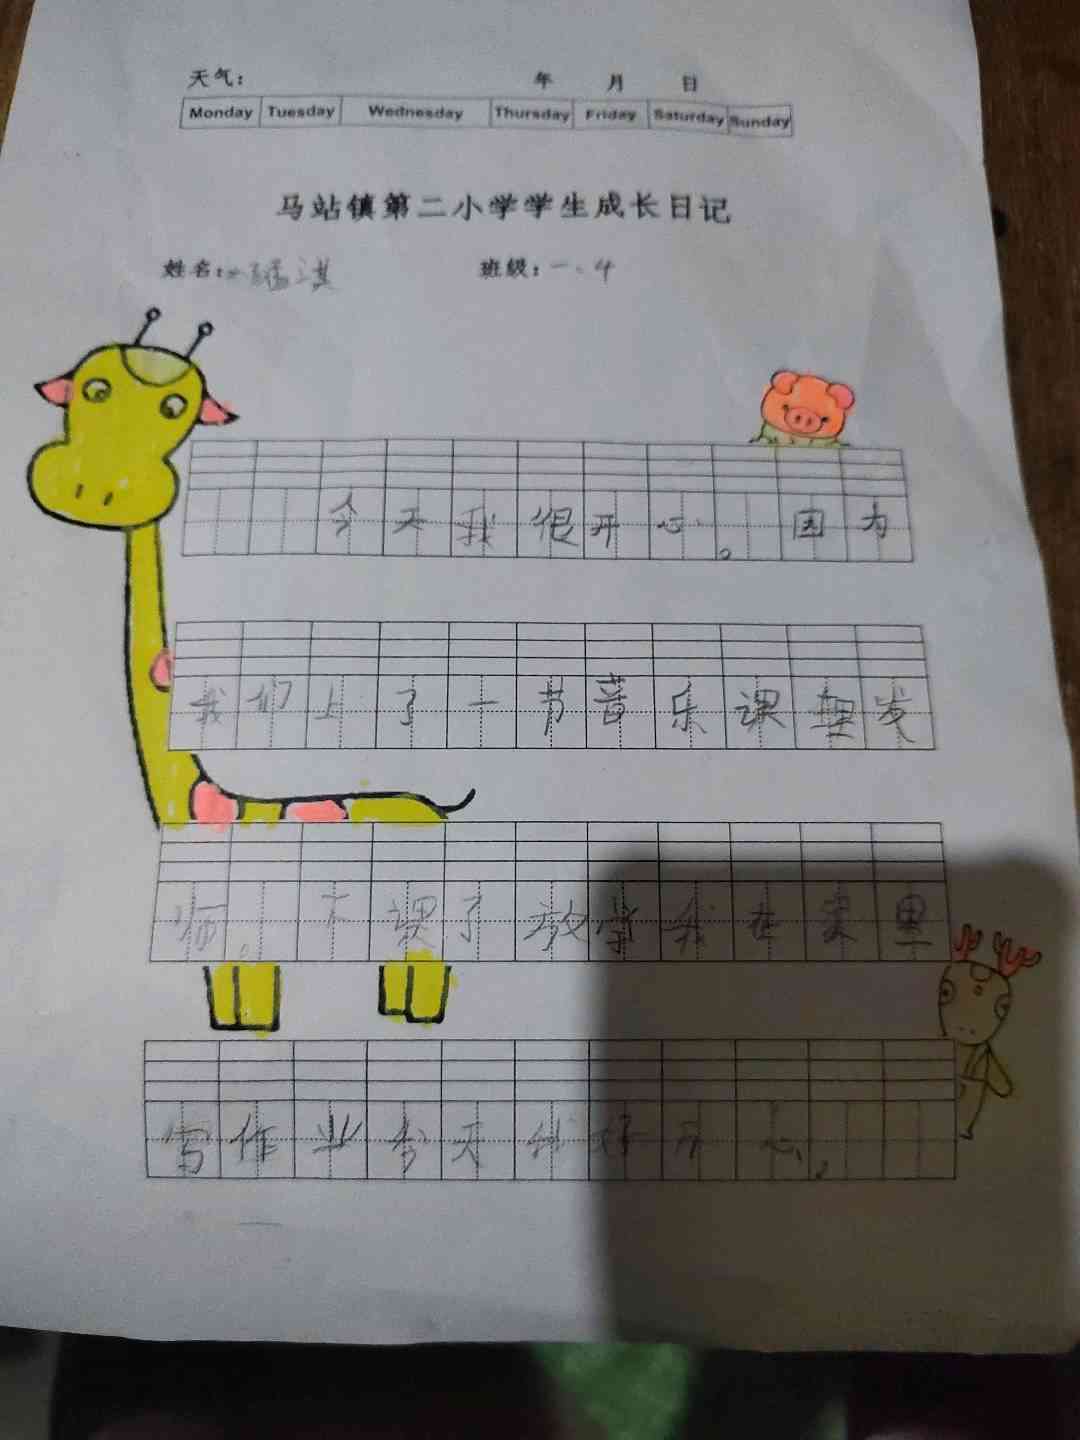 天气： 年 月 日
Monday Tuesday Wednesday Thursday Friday Saturday Sunday
马站镇第二小学学生成长日记
姓名： 班级：一、4
今天我很开心。因为
我们上了一节音乐课理发
师。下课了放学我在家里
写作业今天我好开心。